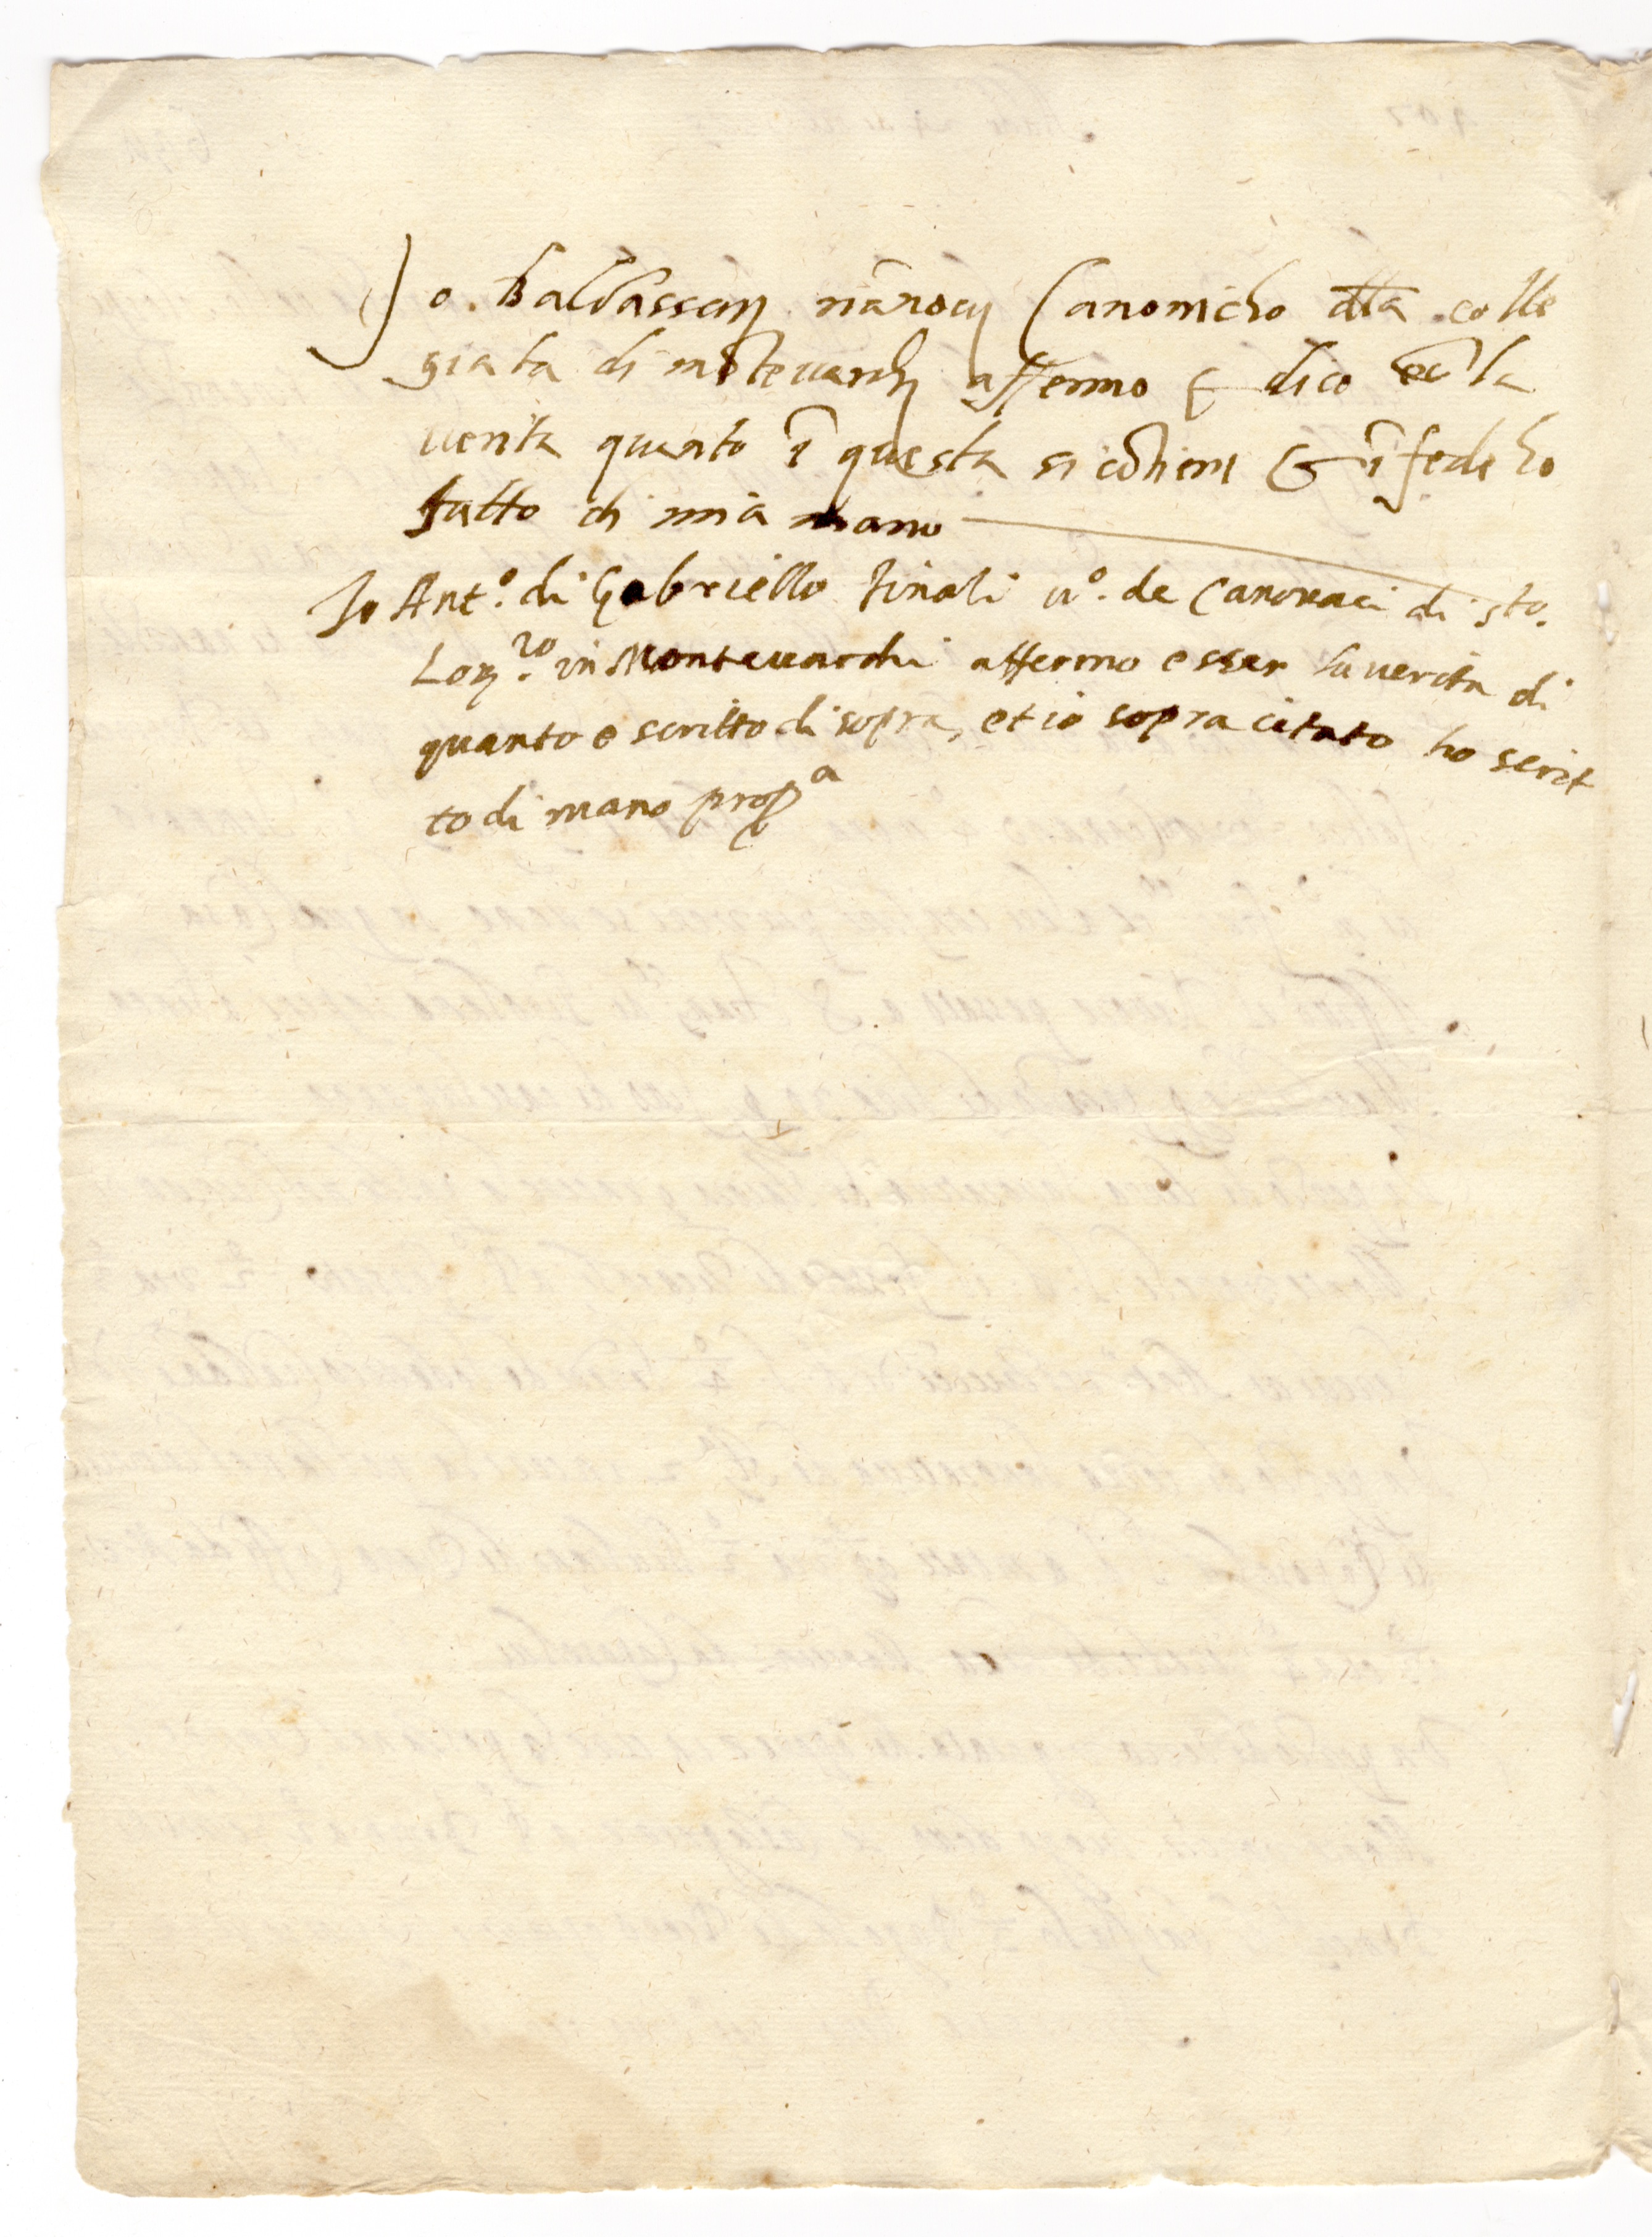 Io. Baldassarj nãnocij Canonicho dlla colle
giata di mõtevarchj affermo & dico eẽ la
uerita quanto ĩ questa si cõtiene & ĩ fede ho
fatto di mia mano
Io Ant.º di Gabriello Finali uº. de Canonaci di sto.
Lorz.ro in Montevarchi affermo esser la verita di
quanto e scritto di sopra, et io sopra citato ho scrit
to di mano prop.a